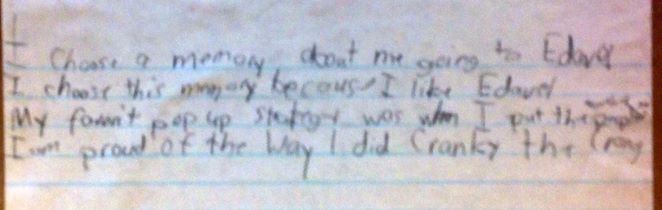 I choose a memory about me going to Edavel
I choose this memory because I like Edavel
My favorit pop up strategy was when I put the people
I am proud of the way I did Cranky the Crany